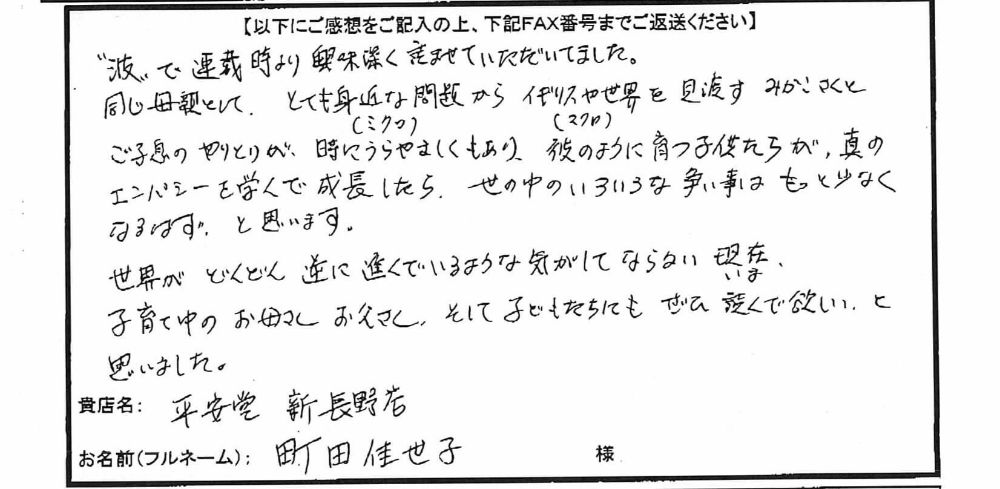 【以下にご感想をご記入の上、下記FAX番号までご返送ください】
"波"で連載時より興味深く読ませていただいてました。
同じ母親として、とても身近な問題からイギリスや世界を見渡すみかこさんと
(ミクロ) (マクロ)
ご子息のやりとりが、時にうらやましくもあり、彼のように育つ子供たちが、真の
エンパシーを学んで成長したら、世の中のいろいろな争い事はもっと少なく
なるはず、と思います。
世界がどんどん逆に進んでいるような気がしてならない現在、
いま
子育て中のお母さんお父さん、そして子どもたちにもぜひ読んで欲しい、と
思いました。
貴店名: 平安堂 新長野店
お名前(フルネーム): 町田佳世子 様